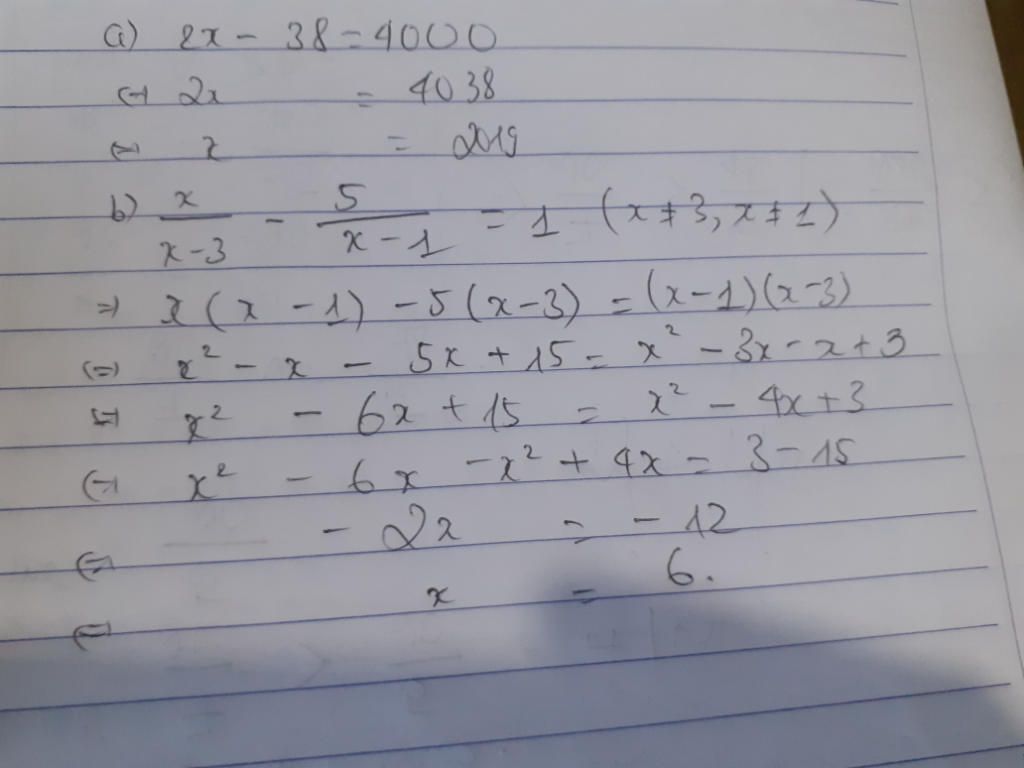 a) 2x - 38 = 4000
⇔ 2x = 4038
⇔ x = 2019
b) x/(x-3) - 5/(x-1) = 1 (x ≠ 3, x ≠ 1)
⇒ x(x - 1) - 5(x - 3) = (x - 1)(x - 3)
⇔ x² - x - 5x + 15 = x² - 3x - x + 3
⇔ x² - 6x + 15 = x² - 4x + 3
⇔ x² - 6x - x² + 4x = 3 - 15
⇔ - 2x = - 12
⇔ x = 6.